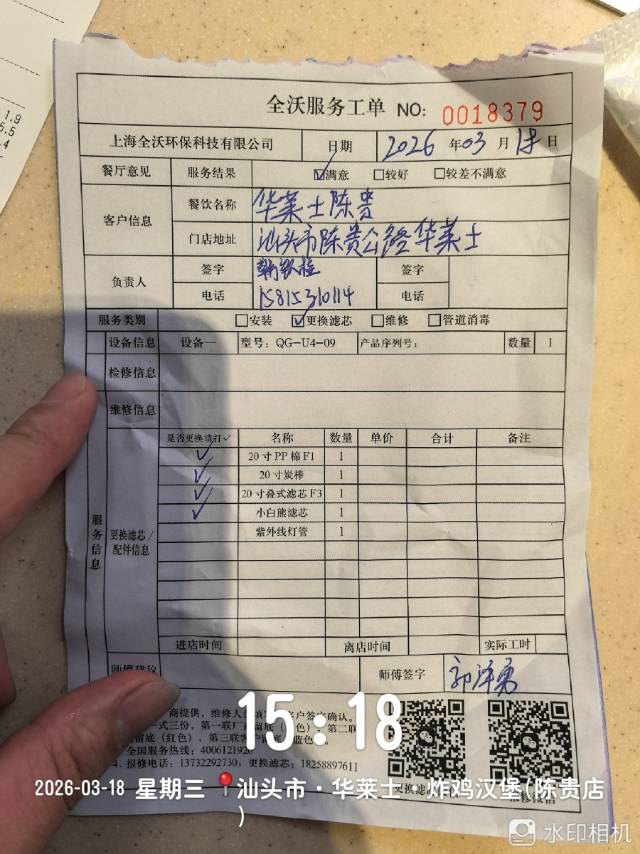 1.9
5.5
.4
全沃服务工单 NO: 0018379
上海全沃环保科技有限公司 日期 2026 年 03 月 18 日
餐厅意见 服务结果 ☑满意 □较好 □较差不满意
客户信息 餐饮名称 华莱士陈贵
门店地址 汕头市陈贵公路华莱士
负责人 签字 签字
电话 15815310114 电话
服务类别 □安装 ☑更换滤芯 □维修 □管道消毒
设备信息 设备一 型号: QG-U4-09 产品序列号: 数量 1
检修信息
维修信息
服务信息
更换滤芯/配件信息
是否更换请打✓ 名称 数量 单价 合计 备注
✓ 20寸PP棉F1 1
✓ 20寸炭棒 1
✓ 20寸叠式滤芯F3 1
✓ 小白熊滤芯 1
紫外线灯管 1
进店时间 离店时间 实际工时
师傅建议 师傅签字 郭泽勇
商提供，维修人 客户签字确认。
一式三份，第一联厂 留底（ 色）、第二联
留底（红色）、第三联客户留 蓝色）。
全国服务热线: 400612192
. 报修电话: 13732292730, 更换滤芯: 18258897611
更换滤芯
15:18
2026-03-18 星期三 汕头市·华莱士 炸鸡汉堡(陈贵店
)
水印相机